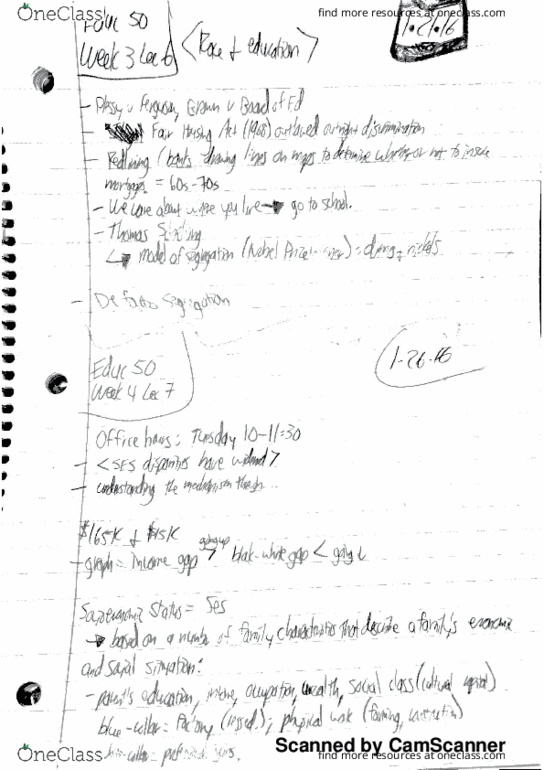 OneClass
find more resources at oneclass.com
Educ 50
Week 3 Lec 6
<Race & education>
1-21-16
- Plessy v Ferguson, Brown v Board of Ed
- Fair Housing Act (1968) outlawed outright discrimination
- Redlining (banks drawing lines on maps to determine whether or not to insure
mortgage = 60s-70s
- We care about where you live → go to school.
- Thomas
↳ model of segregation (Nobel Prize winner) = dimes & nickels
- De facto Segregation
1-26-16
Educ 50
Week 4 Lec 7
Office hours: Tuesday 10-11:30
- <SES disparities have widened>
- understanding the mechanism though...
$165K & $15K
- graph = income gap going up > black-white gap < going ↓
Socioeconomic Status = SES
→ based on a number of family characteristics that describe a family's economic
and social situation:
- parent's education, income, occupation, wealth, social class (cultural capital)
blue-collar = factory; physical work (farming, construction)
OneClass
Scanned by CamScanner
find more resources at oneclass.com